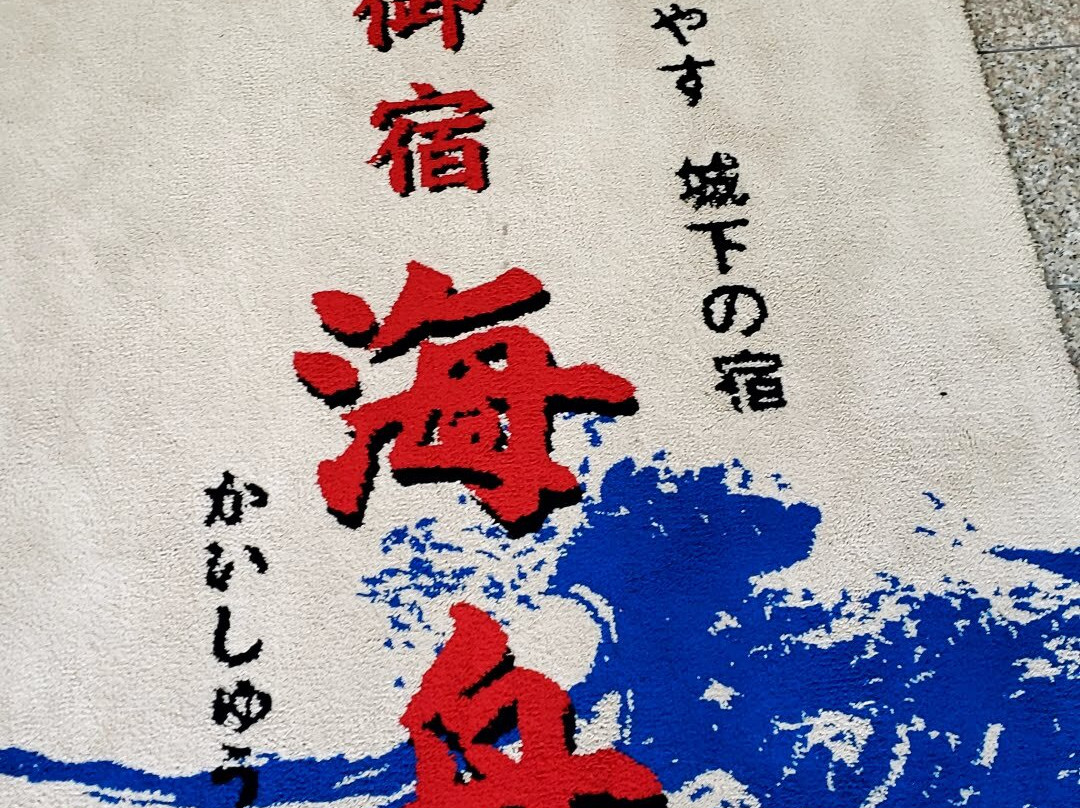 やす 城下の宿
御宿
海舟
かいしゅう